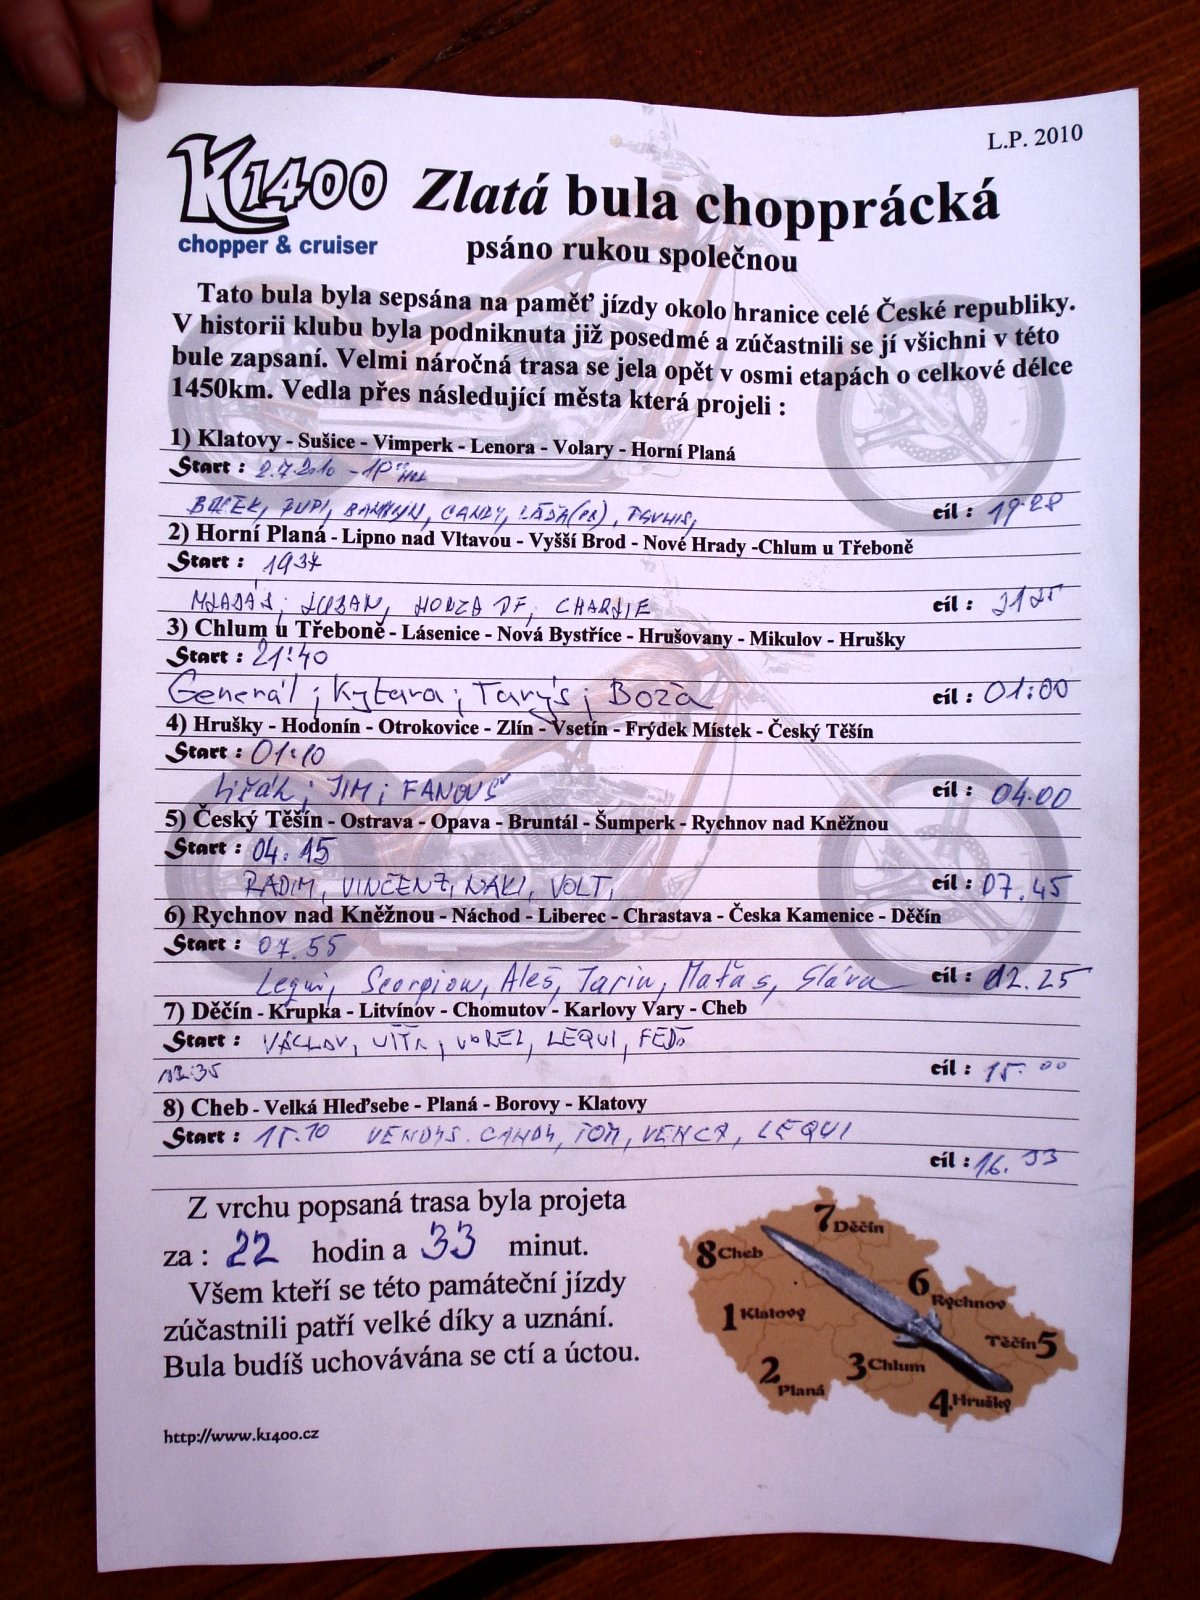 L.P. 2010
K1400
chopper & cruiser
Zlatá bula chopprácká
psáno rukou společnou
Tato bula byla sepsána na paměť jízdy okolo hranice celé České republiky.
V historii klubu byla podniknuta již posedmé a zúčastnili se jí všichni v této
bule zapsaní. Velmi náročná trasa se jela opět v osmi etapách o celkové délce
1450km. Vedla přes následující města která projeli :
1) Klatovy - Sušice - Vimperk - Lenora - Volary - Horní Planá
Start : 2.7.2010
CANDY, cíl : 19:28
2) Horní Planá - Lipno nad Vltavou - Vyšší Brod - Nové Hrady -Chlum u Třeboně
Start : 1937
HONZA CHARLIE cíl : 2125
3) Chlum u Třeboně - Lásenice - Nová Bystříce - Hrušovany - Mikulov - Hrušky
Start : 21:40
Generál ; Kytara ; Taryš ; Boža cíl : 01:00
4) Hrušky - Hodonín - Otrokovice - Zlín - Vsetín - Frýdek Místek - Český Těšín
Start : 01:10
JIM ; FANOUŠ cíl : 04.00
5) Český Těšín - Ostrava - Opava - Bruntál - Šumperk - Rychnov nad Kněžnou
Start : 04.15
RADIM, VINCENZ, NAKI, VOLT, cíl : 07.45
6) Rychnov nad Kněžnou - Náchod - Liberec - Chrastava - Česka Kamenice - Děčín
Start : 07.55
Lequi, Scorpion, Aleš, Matas, Sláva cíl : 12.25
7) Děčín - Krupka - Litvínov - Chomutov - Karlovy Vary - Cheb
Start : VÁCLAV, LEQUI,
12:35 cíl : 15.00
8) Cheb - Velká Hleďsebe - Planá - Borovy - Klatovy
Start : 15.10 CANDY, TOM, LEQUI
cíl : 16.33
Z vrchu popsaná trasa byla projeta
za : 22 hodin a 33 minut.
Všem kteří se této památeční jízdy
zúčastnili patří velké díky a uznání.
Bula budíš uchovávána se ctí a úctou.
7 Děčín
8 Cheb
6 Rychnov
1 Klatový
Těčín 5
3 Chlum
2 Planá
4. Hrušký
http://www.k1400.cz